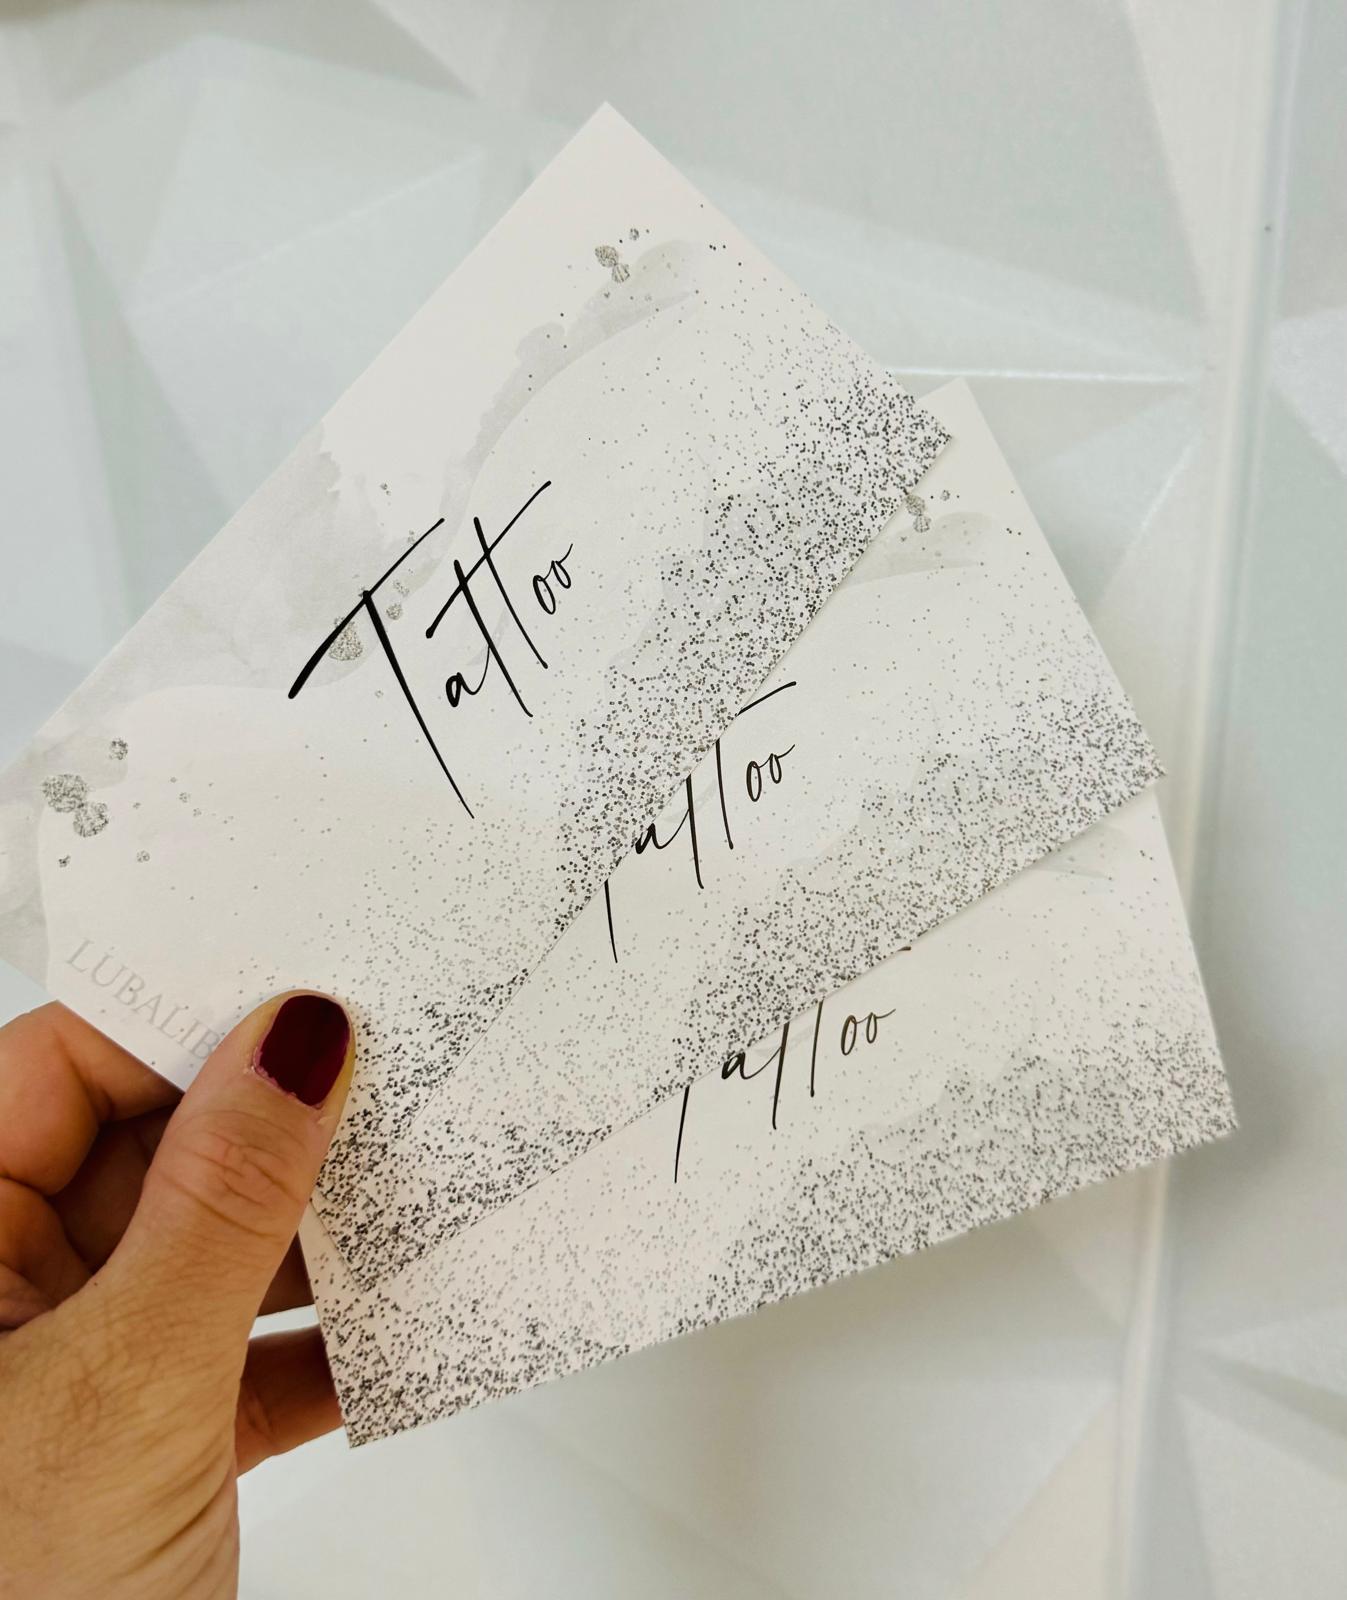 Tattoo
LUBALIB
Tattoo
Tattoo